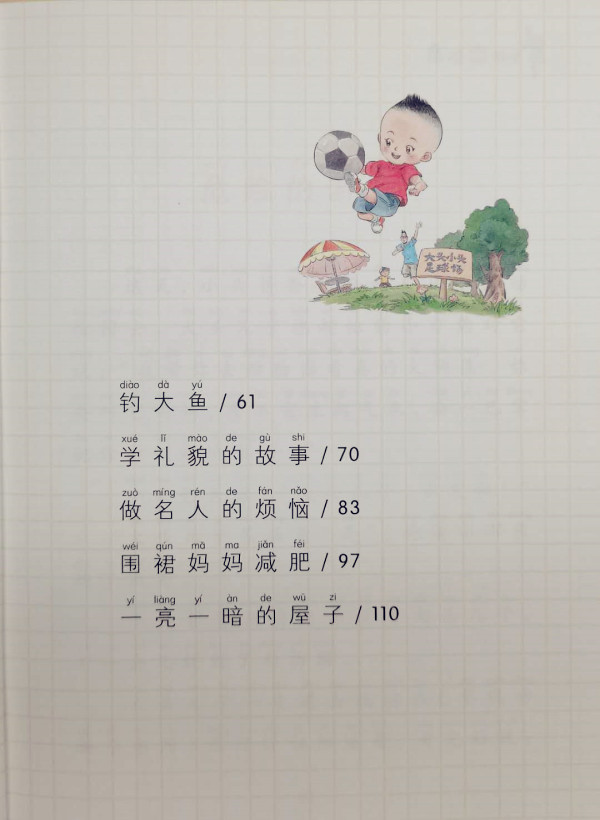 大头小头
足球场
diào dà yú
钓大鱼 / 61
xué lǐ mào de gù shi
学礼貌的故事 / 70
zuò míng rén de fán nǎo
做名人的烦恼 / 83
wéi qún mā ma jiǎn féi
围裙妈妈减肥 / 97
yí liàng yí àn de wū zi
一亮一暗的屋子 / 110